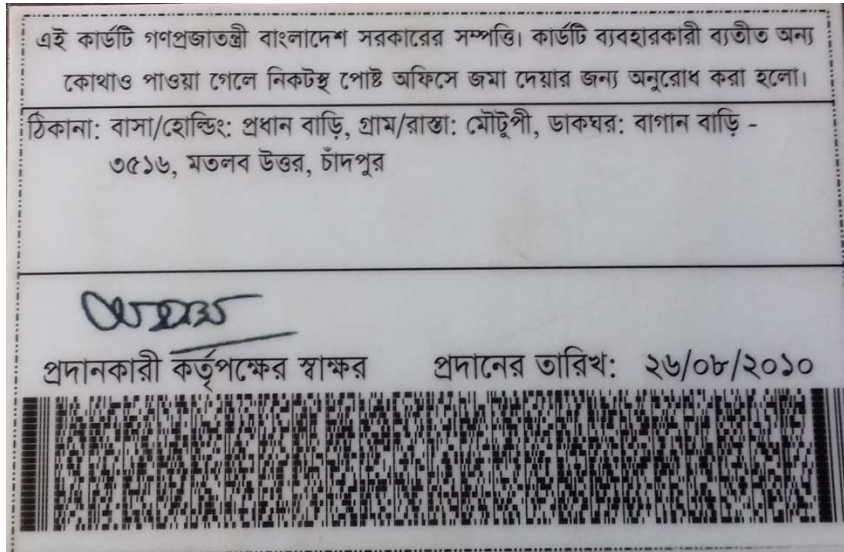 এই কার্ডটি গণপ্রজাতন্ত্রী বাংলাদেশ সরকারের সম্পত্তি। কার্ডটি ব্যবহারকারী ব্যতীত অন্য
কোথাও পাওয়া গেলে নিকটস্থ পোষ্ট অফিসে জমা দেয়ার জন্য অনুরোধ করা হলো।
ঠিকানা: বাসা/হোল্ডিং: প্রধান বাড়ি, গ্রাম/রাস্তা: মৌটুপী, ডাকঘর: বাগান বাড়ি -
৩৫১৬, মতলব উত্তর, চাঁদপুর
প্রদানকারী কর্তৃপক্ষের স্বাক্ষর প্রদানের তারিখ: ২৬/০৮/২০১০